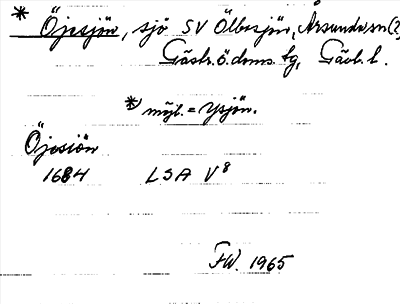 * Öjesjön, sjö SV Ölbosjön, Årsunda sn (?)
Gästr. ö. doms. tg, Gävl. l.
* möjl. = Ysjön.
Öjesiön
1684 LSA V8
FW. 1965